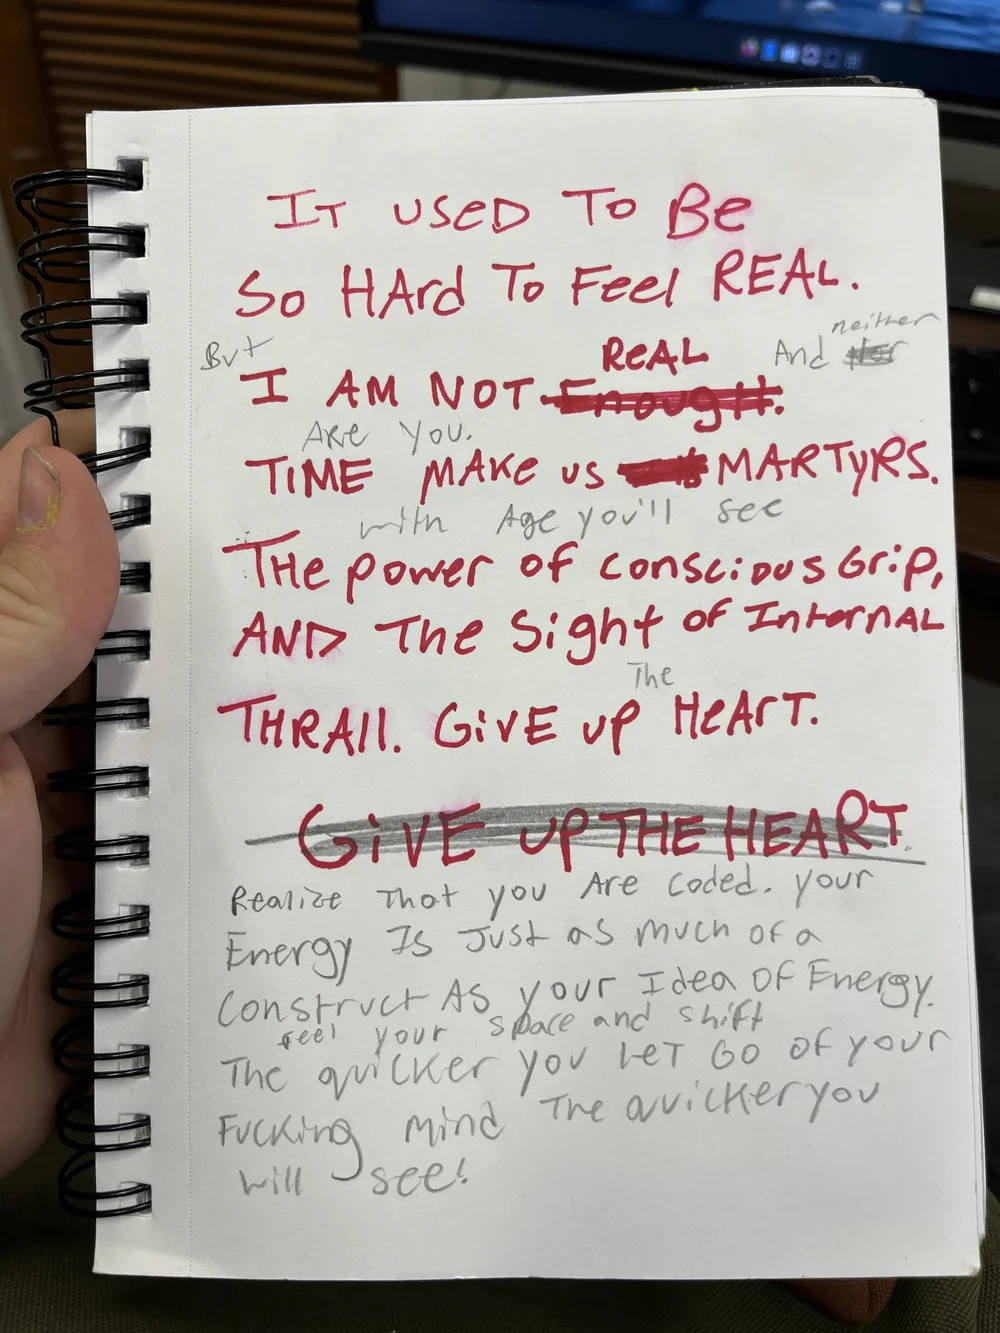 IT USED TO BE
SO HARD TO FEEL REAL.
neither
But REAL And Nor
I AM NOT Enough.
ARE YOU.
TIME MAKE US MARTYRS.
with Age you'll see
THE POWER OF CONSCIOUS GRIP,
AND THE SIGHT OF INTERNAL
The
THRALL. GIVE UP HEART.
GIVE UP THE HEART.
Realize That you Are Coded. your
Energy Is Just as much of a
Construct As your Idea Of Energy.
feel your space and shift
The quicker you Let Go of your
Fucking mind The quicker you
will see!